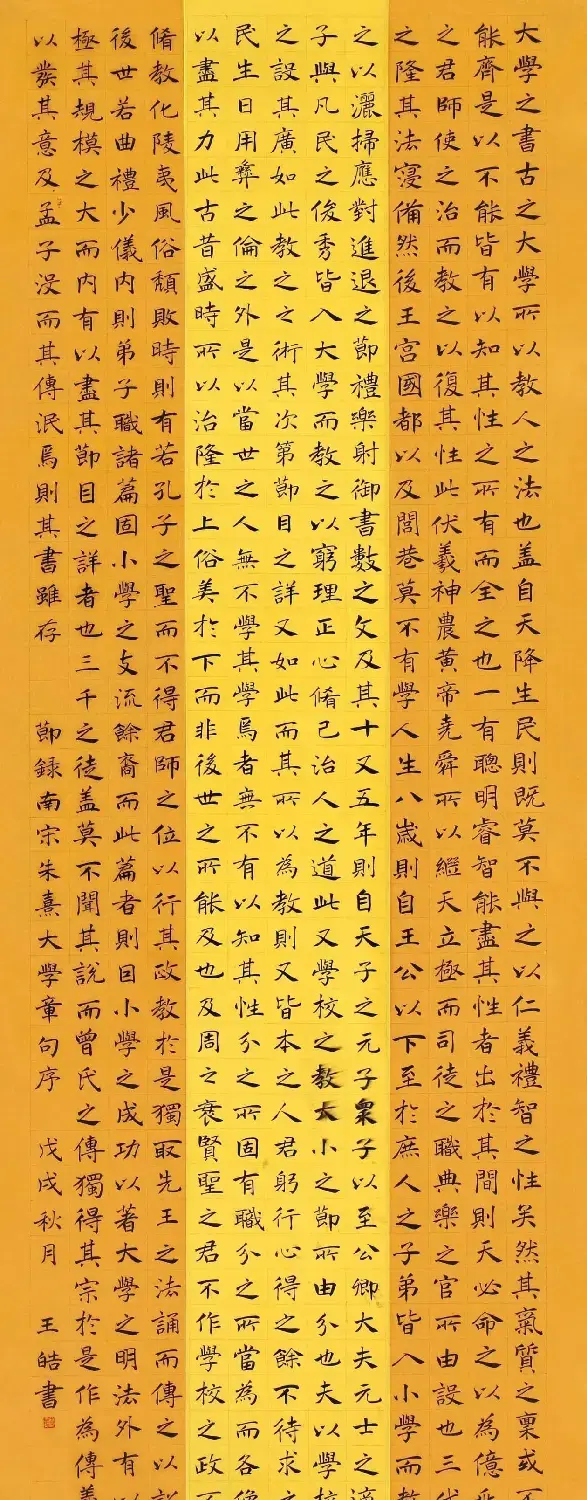 大學之書古之大學所以教人之法也盖自天降生民則既莫不與之以仁義禮智之性矣然其氣質之稟或不
能齊是以不能皆有以知其性之所有而全之也一有聰明睿智能盡其性者出於其間則天必命之以為億兆
之君師使之治而教之以復其性此伏羲神農黃帝堯舜所以繼天立極而司徒之職典樂之官所由設也三代
之隆其法寖備然後王宮國都以及閭巷莫不有學人生八歲則自王公以下至於庶人之子弟皆入小學而教
之以灑掃應對進退之節禮樂射御書數之文及其十又五年則自天子之元子衆子以至公卿大夫元士之適
子與凡民之俊秀皆入大學而教之以窮理正心脩己治人之道此又學校之教大小之節所由分也夫以學校
之設其廣如此教之之術其次第節目之詳又如此而其所以為教則又皆本之人君躬行心得之餘不待求之
民生日用彝之倫之外是以當世之人無不學其學焉者無不有以知其性分之所固有職分之所當為而各俛
以盡其力此古昔盛時所以治隆於上俗美於下而非後世之所能及也及周之衰賢聖之君不作學校之政不
脩教化陵夷風俗頹敗時則有若孔子之聖而不得君師之位以行其政教於是獨取先王之法誦而傳之以詔
後世若曲禮少儀內則弟子職諸篇固小學之支流餘裔而此篇者則因小學之成功以著大學之明法外有以
極其規模之大而內有以盡其節目之詳者也三千之徒盖莫不聞其說而曾氏之傳獨得其宗於是作為傳義
以發其意及孟子沒而其傳泯焉則其書雖存 節錄南宋朱熹大學章句序 戊戌秋月 王皓書